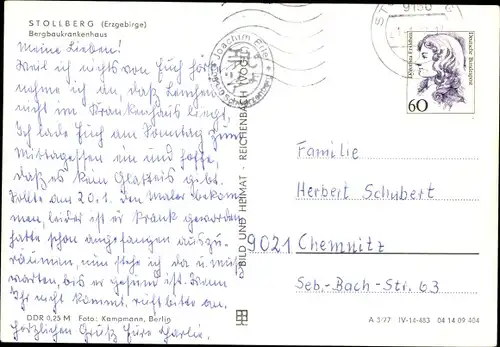 STOLLBERG (Erzgebirge)
Bergbaukrankenhaus
Meine Lieben!
Weil ich nichts von Euch höre
nehme ich an, daß
nicht im Krankenhaus liegt,
Ich lade Euch am Sonntag zum
Mittagessen ein und hoffe,
daß es kein Glatteis gibt.
Sollte am 20.1. den Maler bekom-
men, leider ist er krank geworden
hatte schon angefangen auszu-
räumen, nun stehe ich da u. muß
warten, bis er gesund ist. Wenn
Ihr nicht kommt, ruft bitte an.
Herzlichen Gruß Eure
DDR 0,25 M Foto: Kampmann, Berlin
BILD UND HEIMAT · REICHENBACH (VOGTL)
9150
Joachim
Deutsche Bundespost
Dorothea Erxleben
60
Familie
Herbert Schubert
9021 Chemnitz
Seb.-Bach-Str. 63
A 3/77 IV-14-483 04 14 09 404